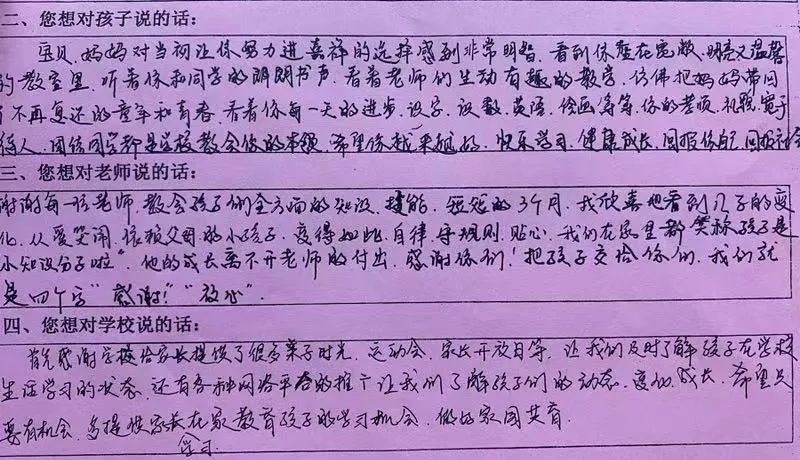 二、您想对孩子说的话:
宝贝,妈妈对当初让你努力进嘉祥的选择感到非常明智。看到你坐在宽敞、明亮又温馨
的教室里,听着你和同学的朗朗书声,看着老师们生动有趣的教学,仿佛把妈妈带回
了不再复还的童年和青春,看着你每一天的进步,识字、识数、英语、绘画等等,你的孝顺、礼貌、宽于
待人、团结同学都是学校教会你的本领,希望你越来越好,快乐学习,健康成长,回报你自己,回报社会
三、您想对老师说的话:
谢谢每一位老师,教会孩子们全方面的知识、技能,短短的3个月,我欣喜地看到儿子的变
化,从爱哭闹、依赖父母的小孩子,变得如此自律、守规则、贴心,我们在家里都笑称孩子是
小知识分子啦",他的成长离不开老师的付出,感谢你们!把孩子交给你们,我们就
是四个字"感谢!""放心".
四、您想对学校说的话:
首先感谢学校给家长提供了很多亲子时光,运动会、家长开放日等,让我们及时了解孩子在学校
生活学习的状态,还有各种网络平台的推广让我们了解孩子们的动态、变化、成长,希望只
要有机会,多提供家长在家教育孩子的学习机会,做好家园共育.
学习